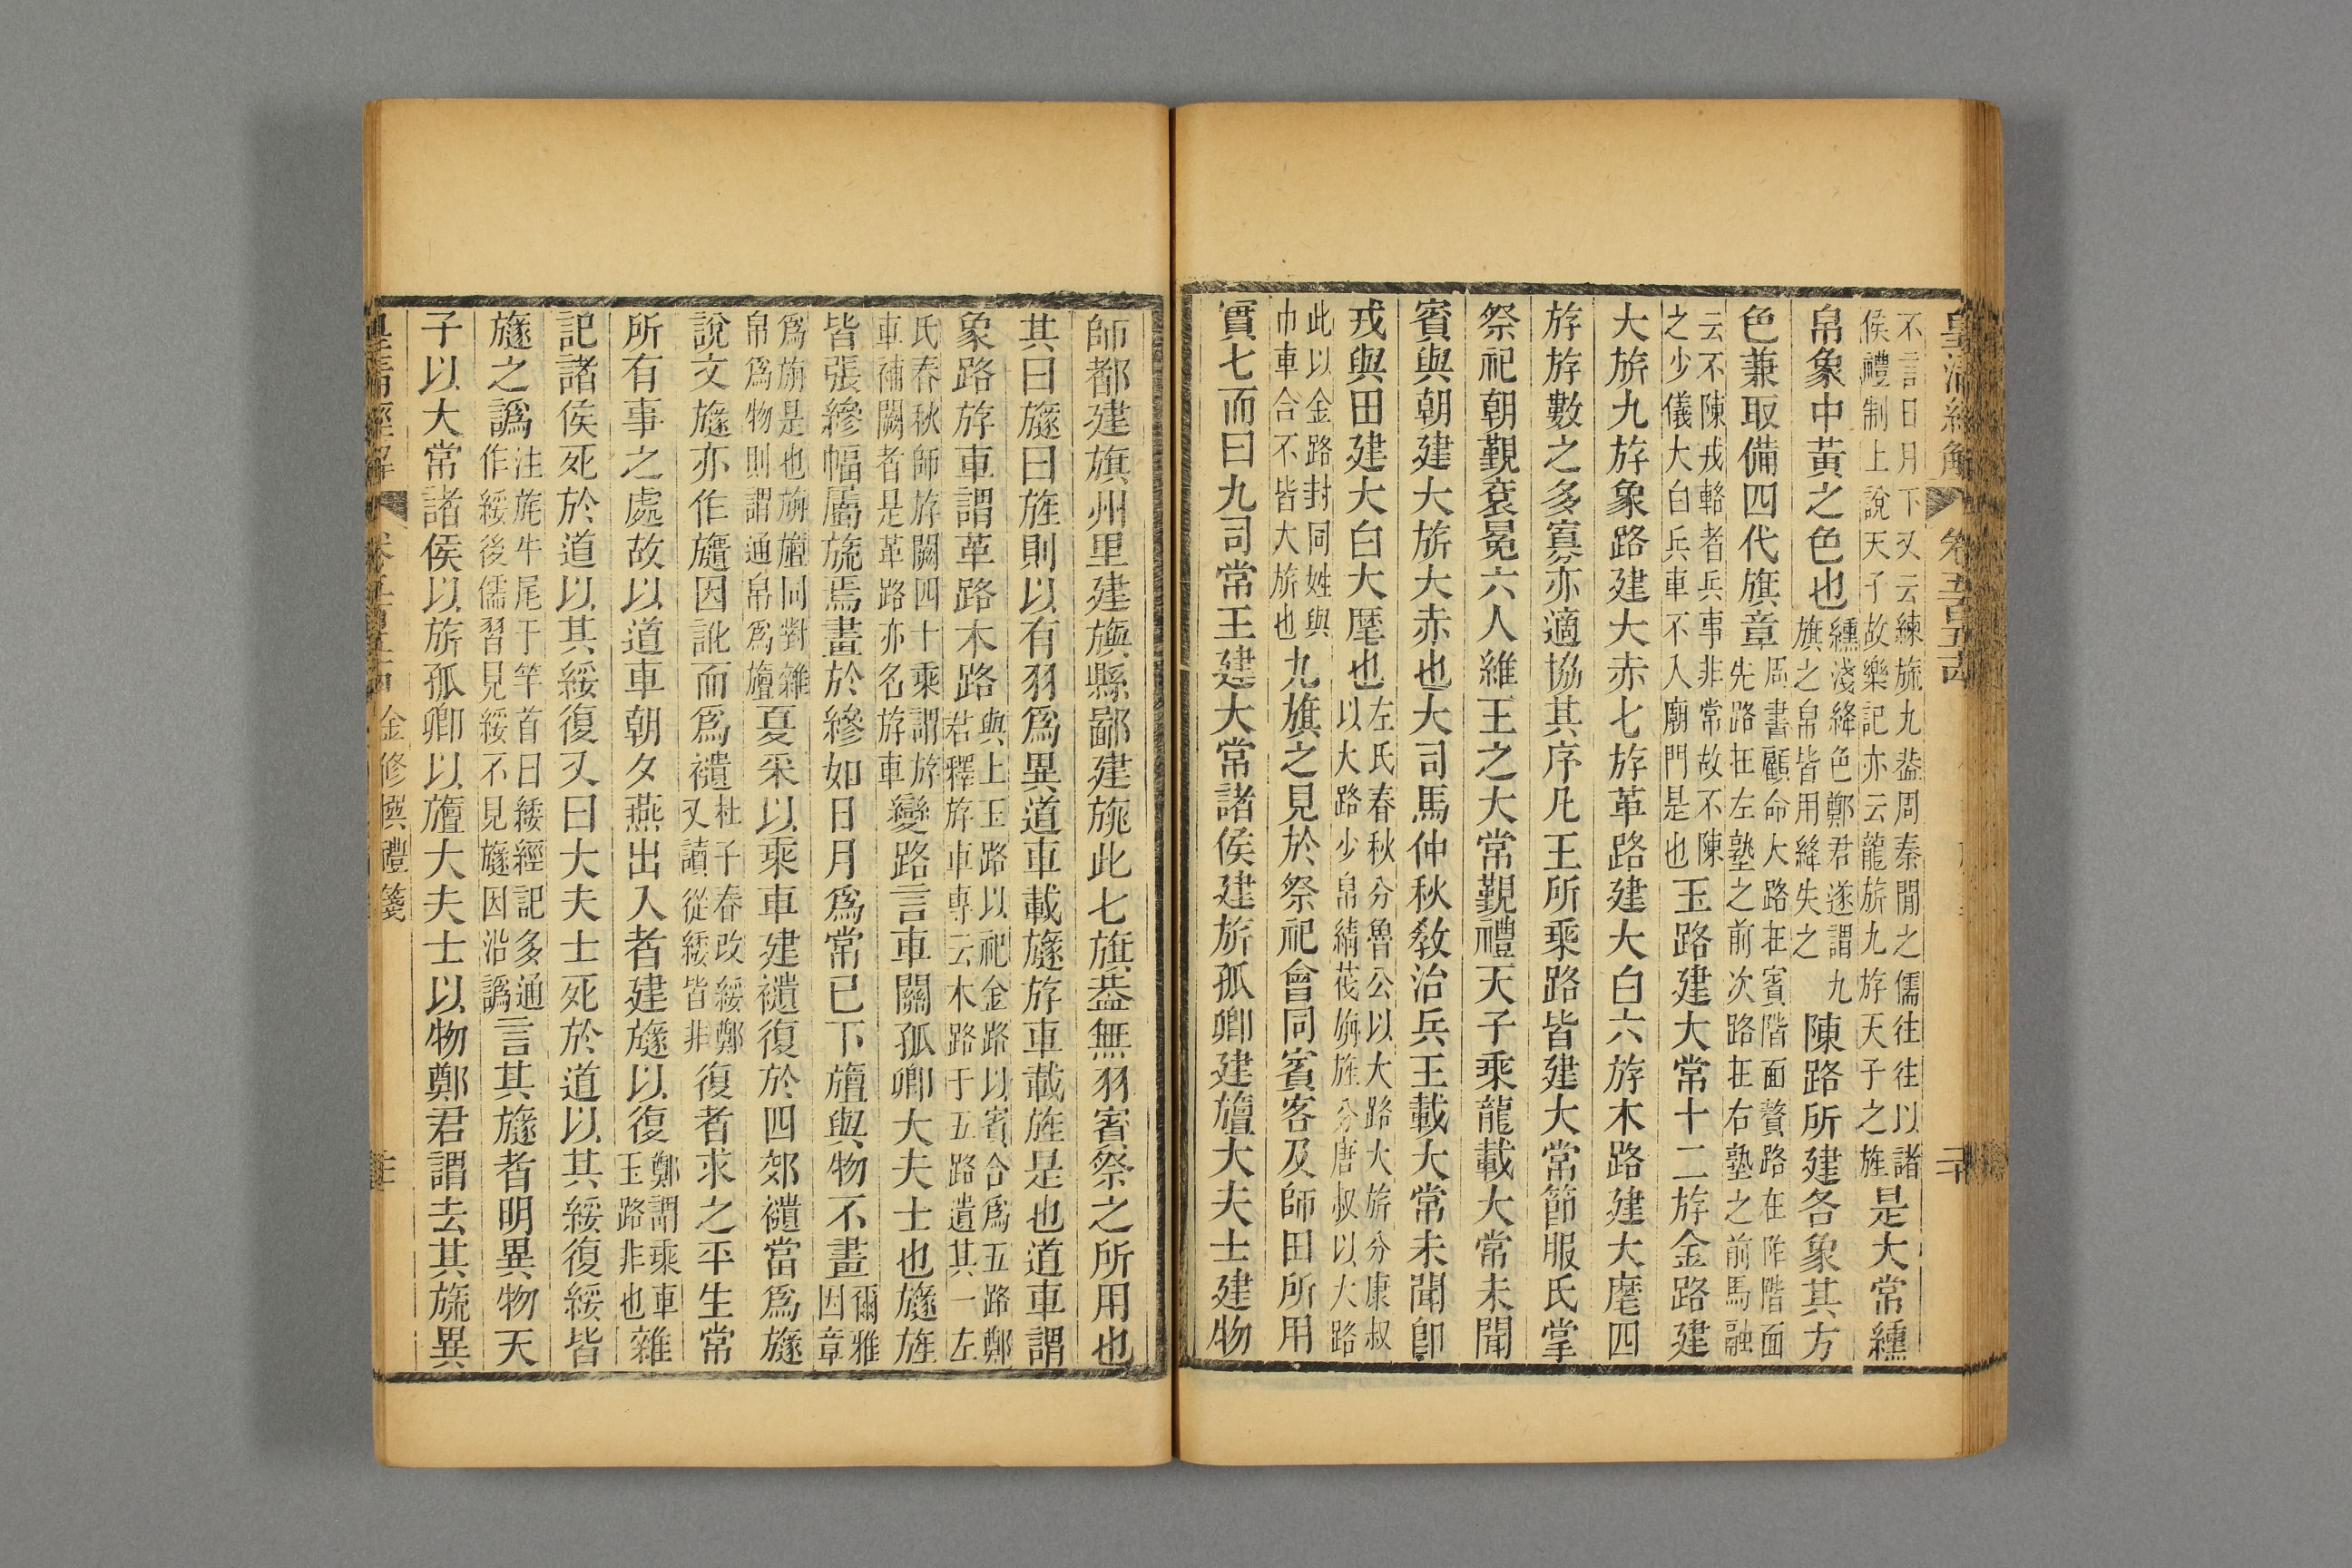 皇清經解 卷五百五十
不言日月下又云練旒九葢周秦閒之儒往往以諸
侯禮制上說天子故樂記亦云龍旂九斿天子之旌 是大常纁
帛象中黃之色也 纁淺絳色鄭君遂謂九
旗之帛皆用絳失之 陳路所建各象其方
色兼取備四代旗章 周書顧命大路在賓階面贅路在阼階面
先路在左塾之前次路在右塾之前馬融
云不陳戎輅者兵事非常故不陳
之少儀大白兵車不入廟門是也 玉路建大常十二斿金路建
大旂九斿象路建大赤七斿革路建大白六斿木路建大麾四
斿斿數之多寡亦適協其序凡王所乘路皆建大常節服氏掌
祭祀朝覲袞冕六人維王之大常覲禮天子乘龍載大常未聞
賓與朝建大旂大赤也大司馬仲秋教治兵王載大常未聞卽
戎與田建大白大麾也 左氏春秋分魯公以大路大旂分康叔
以大路少帛綪茷旃旌分唐叔以大路
此以金路封同姓與
巾車合不皆大旂也 九旗之見於祭祀會同賓客及師田所用
實七而曰九司常王建大常諸侯建旂孤卿建旜大夫士建物
師都建旗州里建旟縣鄙建旐此七旗葢無羽賓祭之所用也
其曰旞曰旌則以有羽爲異道車載旞斿車載旌是也道車謂
象路斿車謂革路木路 與上玉路以祀金路以賓合爲五路鄭
君釋斿車專云木路于五路遺其一左
氏春秋師斿闕四十乘謂斿
車補闕者是革路亦名斿車 變路言車關孤卿大夫士也旞旌
皆張縿幅屬旒焉畫於縿如日月爲常已下旜與物不畫 爾雅
因章
爲旃是也旃旜同對雜
帛爲物則謂通帛爲旜 夏采以乘車建禭復於四郊禭當爲旞
說文旞亦作旜因訛而爲禭 杜子春改綏鄭
又讀從緌皆非 復者求之平生常
所有事之處故以道車朝夕燕出入者建旞以復 鄭謂乘車
玉路非也 雜
記諸侯死於道以其綏復又曰大夫士死於道以其綏復綏皆
旞之譌 注旄牛尾于竿首曰緌經記多通
作綏後儒習見綏不見旞因沿譌 言其旞者明異物天
子以大常諸侯以旂孤卿以旜大夫士以物鄭君謂去其旒異
皇清經解 金修撰禮箋